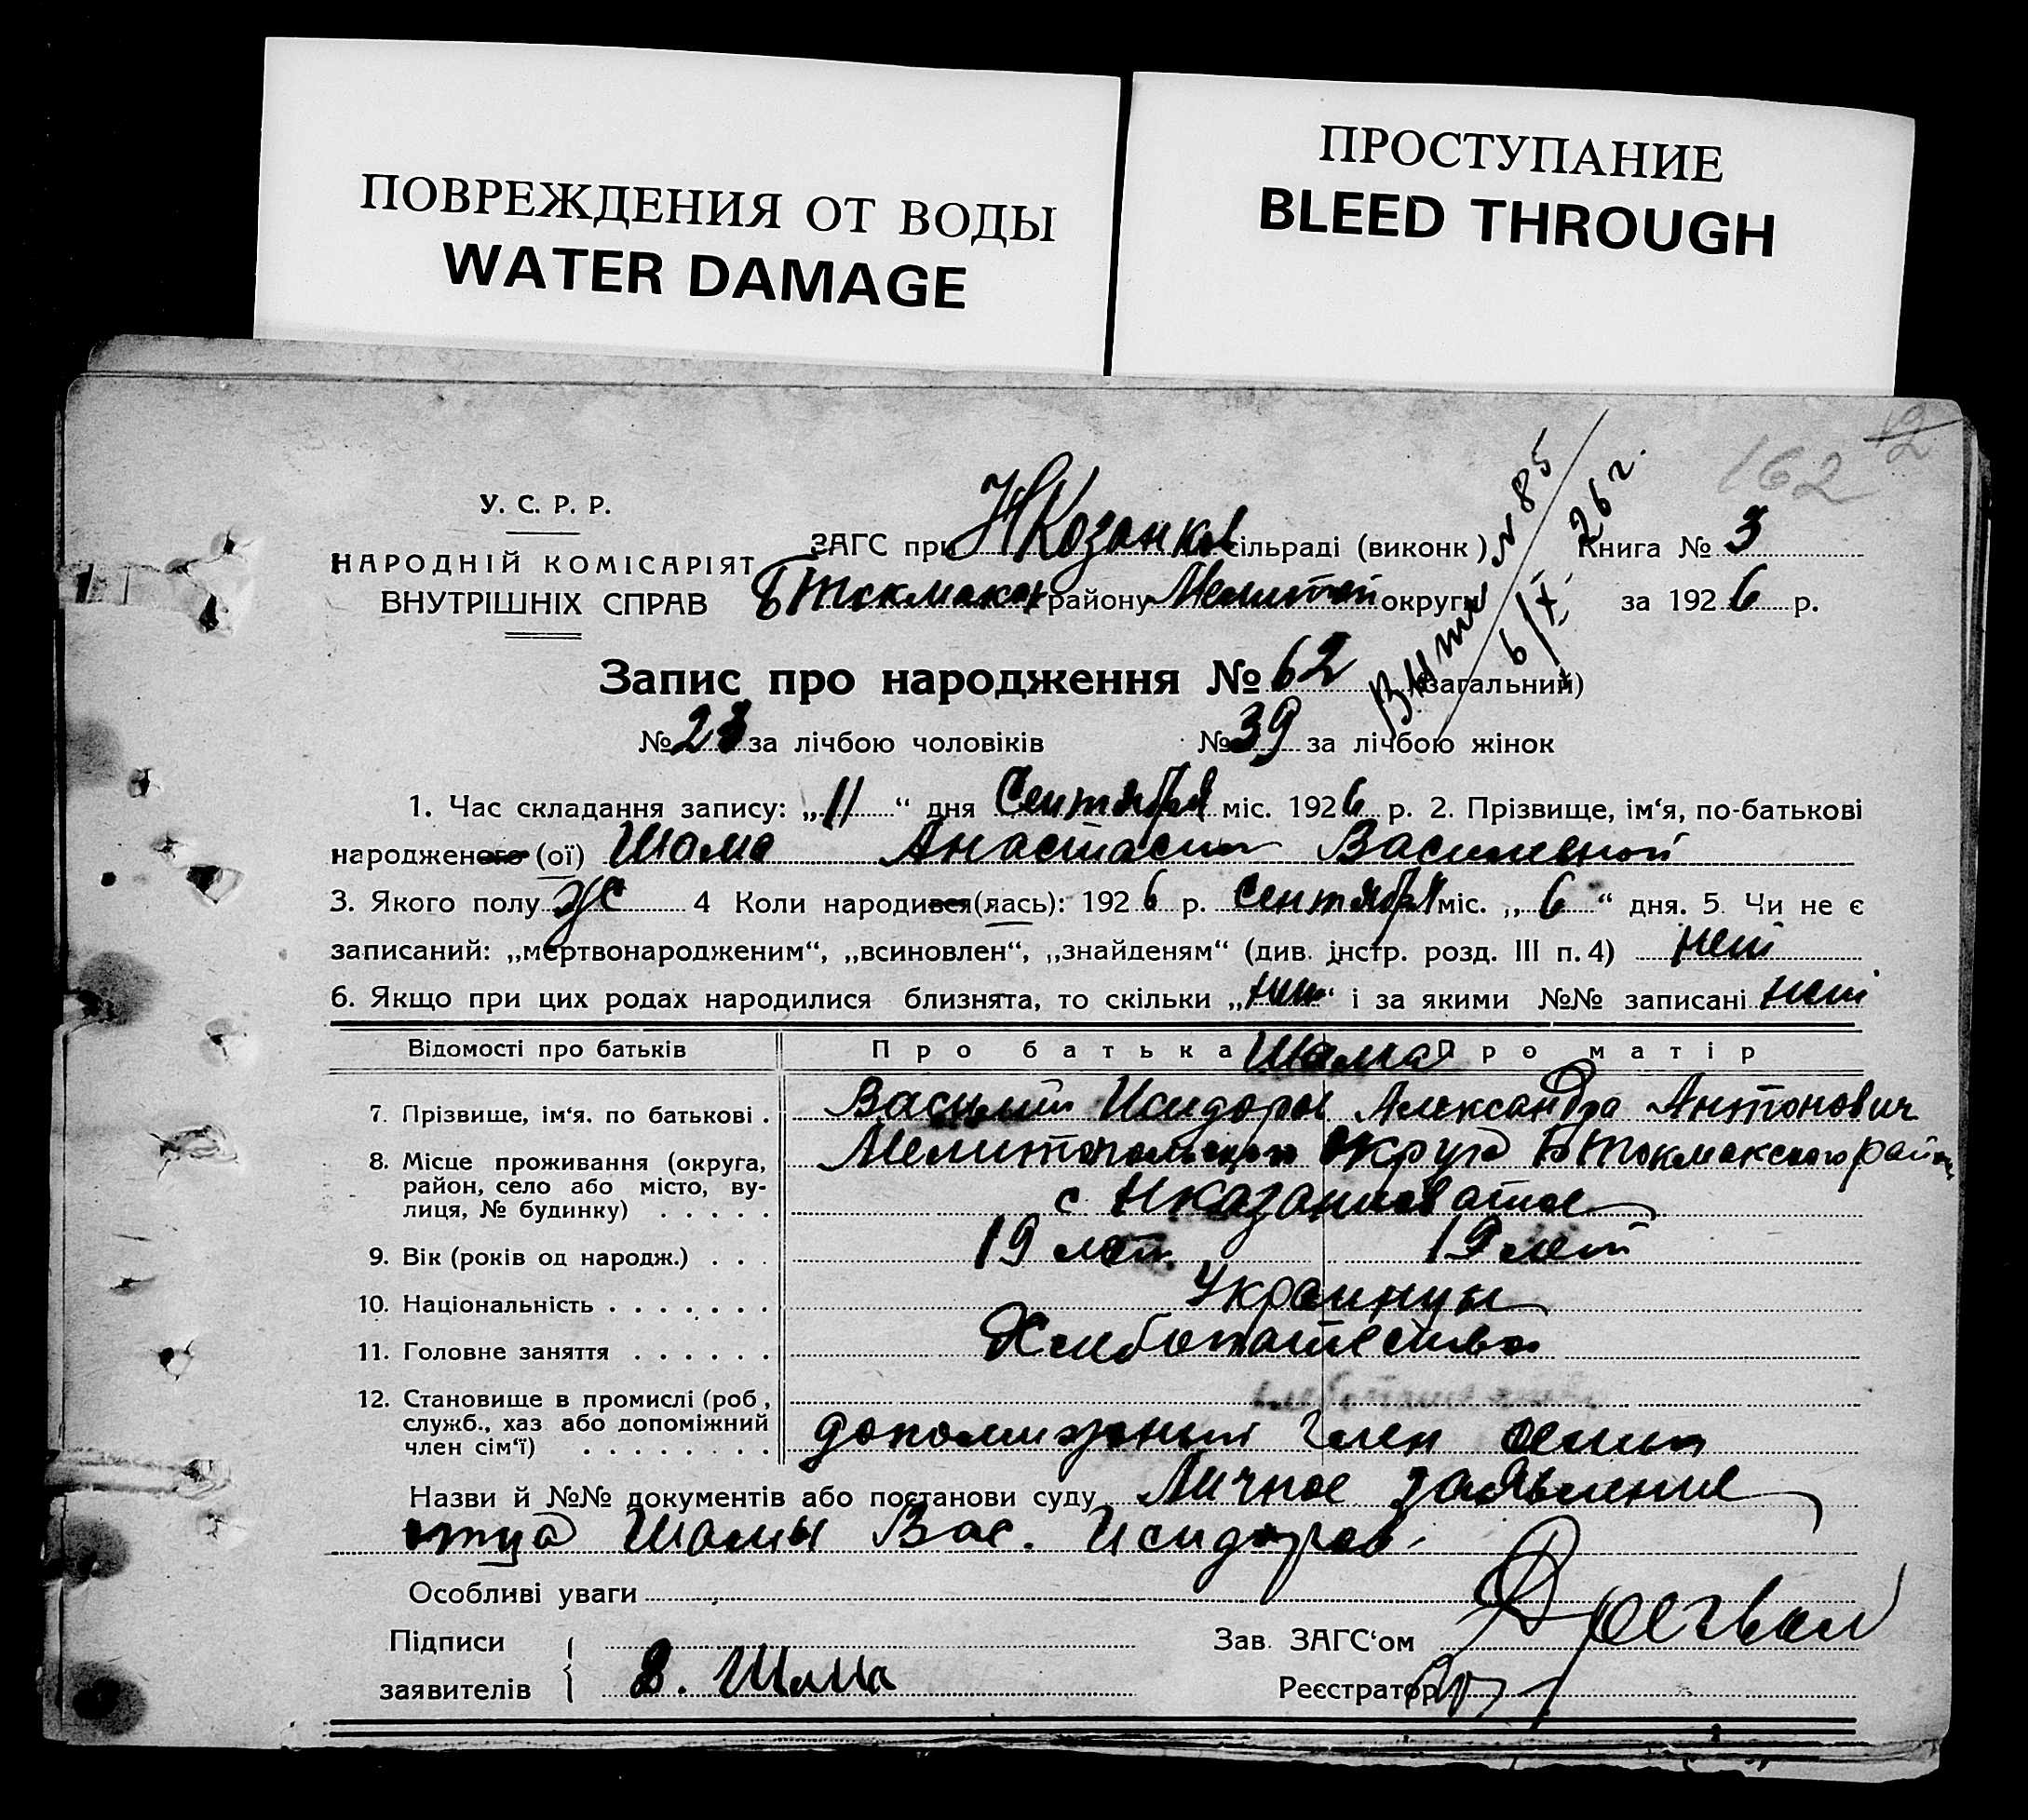 ПОВРЕЖДЕНИЯ ОТ ВОДЫ
WATER DAMAGE
ПРОСТУПАНИЕ
BLEED THROUGH
162 12
У. С. Р. Р.
НАРОДНІЙ КОМІСАРІЯТ
ВНУТРІШНІХ СПРАВ
ЗАГС при НКозанков сільраді (виконк) Книга № 3
БТокмакск району Мелитоп округи за 1926 р.
№ 85
6/X 26 г.
Запис про народження № 62 (загальний)
№ 23 за лічбою чоловіків № 39 за лічбою жінок
1. Час складання запису: „11“ дня Сентября міс. 1926 р. 2. Прізвище, ім‘я, по-батькові
народженого (ої) Шама Анастасия Василевной
3. Якого полу ж 4 Коли народився (лась): 1926 р. Сентября міс. „6“ дня. 5. Чи не є
записаний: „мертвонародженим“, „всиновлен“, „знайденям“ (див. інстр. розд. III п. 4) нет
6. Якщо при цих родах народилися близнята, то скільки „нет“ і за якими №№ записані нет
Відомості про батьків Про батька Шама Про матір
7. Прізвище, ім‘я, по батькові . Василий Исидоров Александра Антонович
8. Місце проживання (округа, район, село або місто, вулиця, № будинку) . . . . . Мелитопольского округа БТокмакского район
с НКазанковатое
9. Вік (років од народж.) . . . 19 лет 19 лет
10. Національність . . . . . . . Украинцы
11. Головне заняття . . . . . . Хлебопашество
12. Становище в промислі (роб, служб., хаз або допоміжний член сім‘ї) . . . . . . . . допомижный член семьи
Назви й №№ документів або постанови суду Личное заявление
отца Шамы Вас. Исидоров.
Особливі уваги
Підписи
заявителів В. Шама
Зав. ЗАГС‘ом
Реєстратор